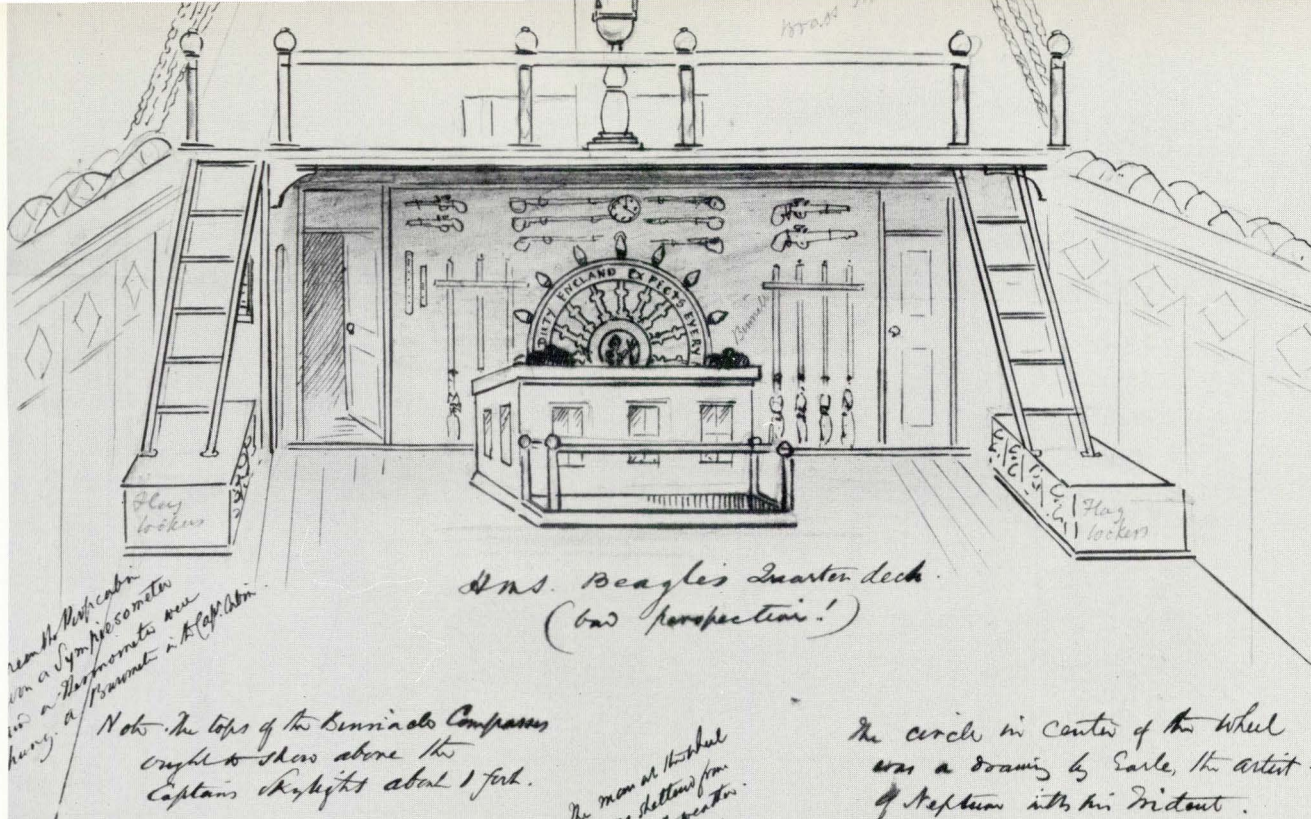 Brass
DUTY ENGLAND EXPECTS EVERY
Binnacle
Flag
lockers
Flag
lockers
Hms. Beagle's Quarter deck.
(bad perspective!)
Poop cabin
a Sympiesometer
a Thermometer were
hung. a Barometer in the Capt. Cabin
Note. The tops of the Binnacle Compasses
ought to show above the
Captains Skylight about 1 foot.
The man at the wheel
sheltered from
weather.
The circle in center of the Wheel
was a drawing by Earle, the artist
of Neptune with his Trident.